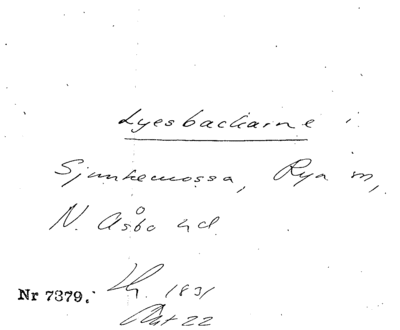 Lyesbackarne i
Sjunkemossa, Rya sn,
N. Åsbo hd.
Nr 7379. 1831
Akt 22